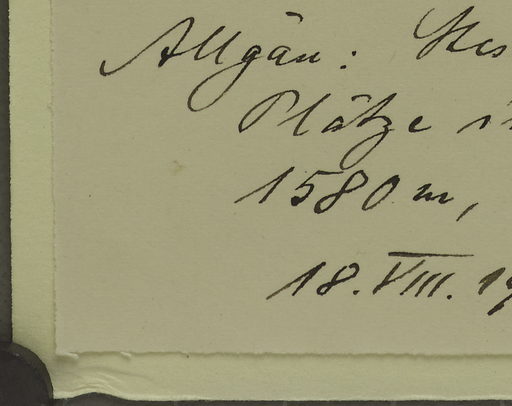 Allgäu:
Plätze
1580 m,
18. VIII. 19